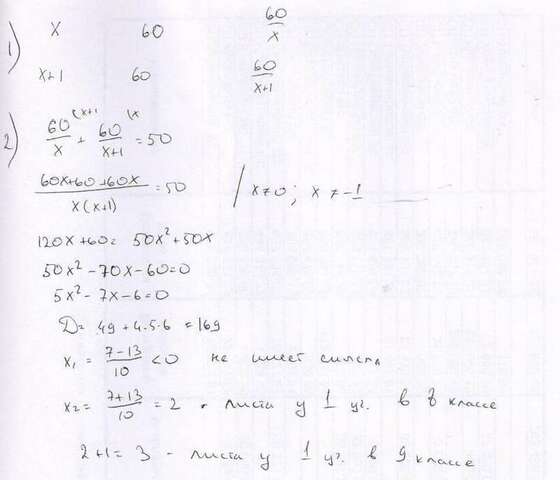 1) x 60 60/x
x+1 60 60/x+1
2) 60/x (x+1 + 60/x+1 (x = 50
60x+60+60x / x(x+1) = 50 / x≠0; x≠-1
120x+60= 50x²+50x
50x²-70x-60=0
5x²-7x-6=0
D= 49+4·5·6 =169
x₁ = 7-13/10 <0 не имеет смысла
x₂= 7+13/10 = 2 - листа у 1 уч. в 8 классе
2+1= 3 - листа у 1 уч. в 9 классе